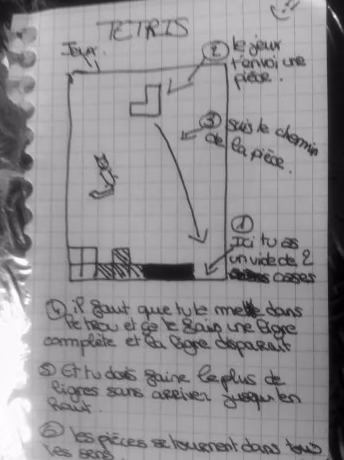 TETRIS
Jour
② le jeux
t'envoi une
pièce.
③ suis le chemin
de la pièce.
①
Ici tu as
un vide de 2
cases
④ il faut que tu le mette dans
le trou et ça te fais une ligne
complète et la ligne disparait
⑤ Et tu dois faire le plus de
lignes sans arriver jusqu'en
haut.
⑥ les pièces se tournent dans tous
les sens.